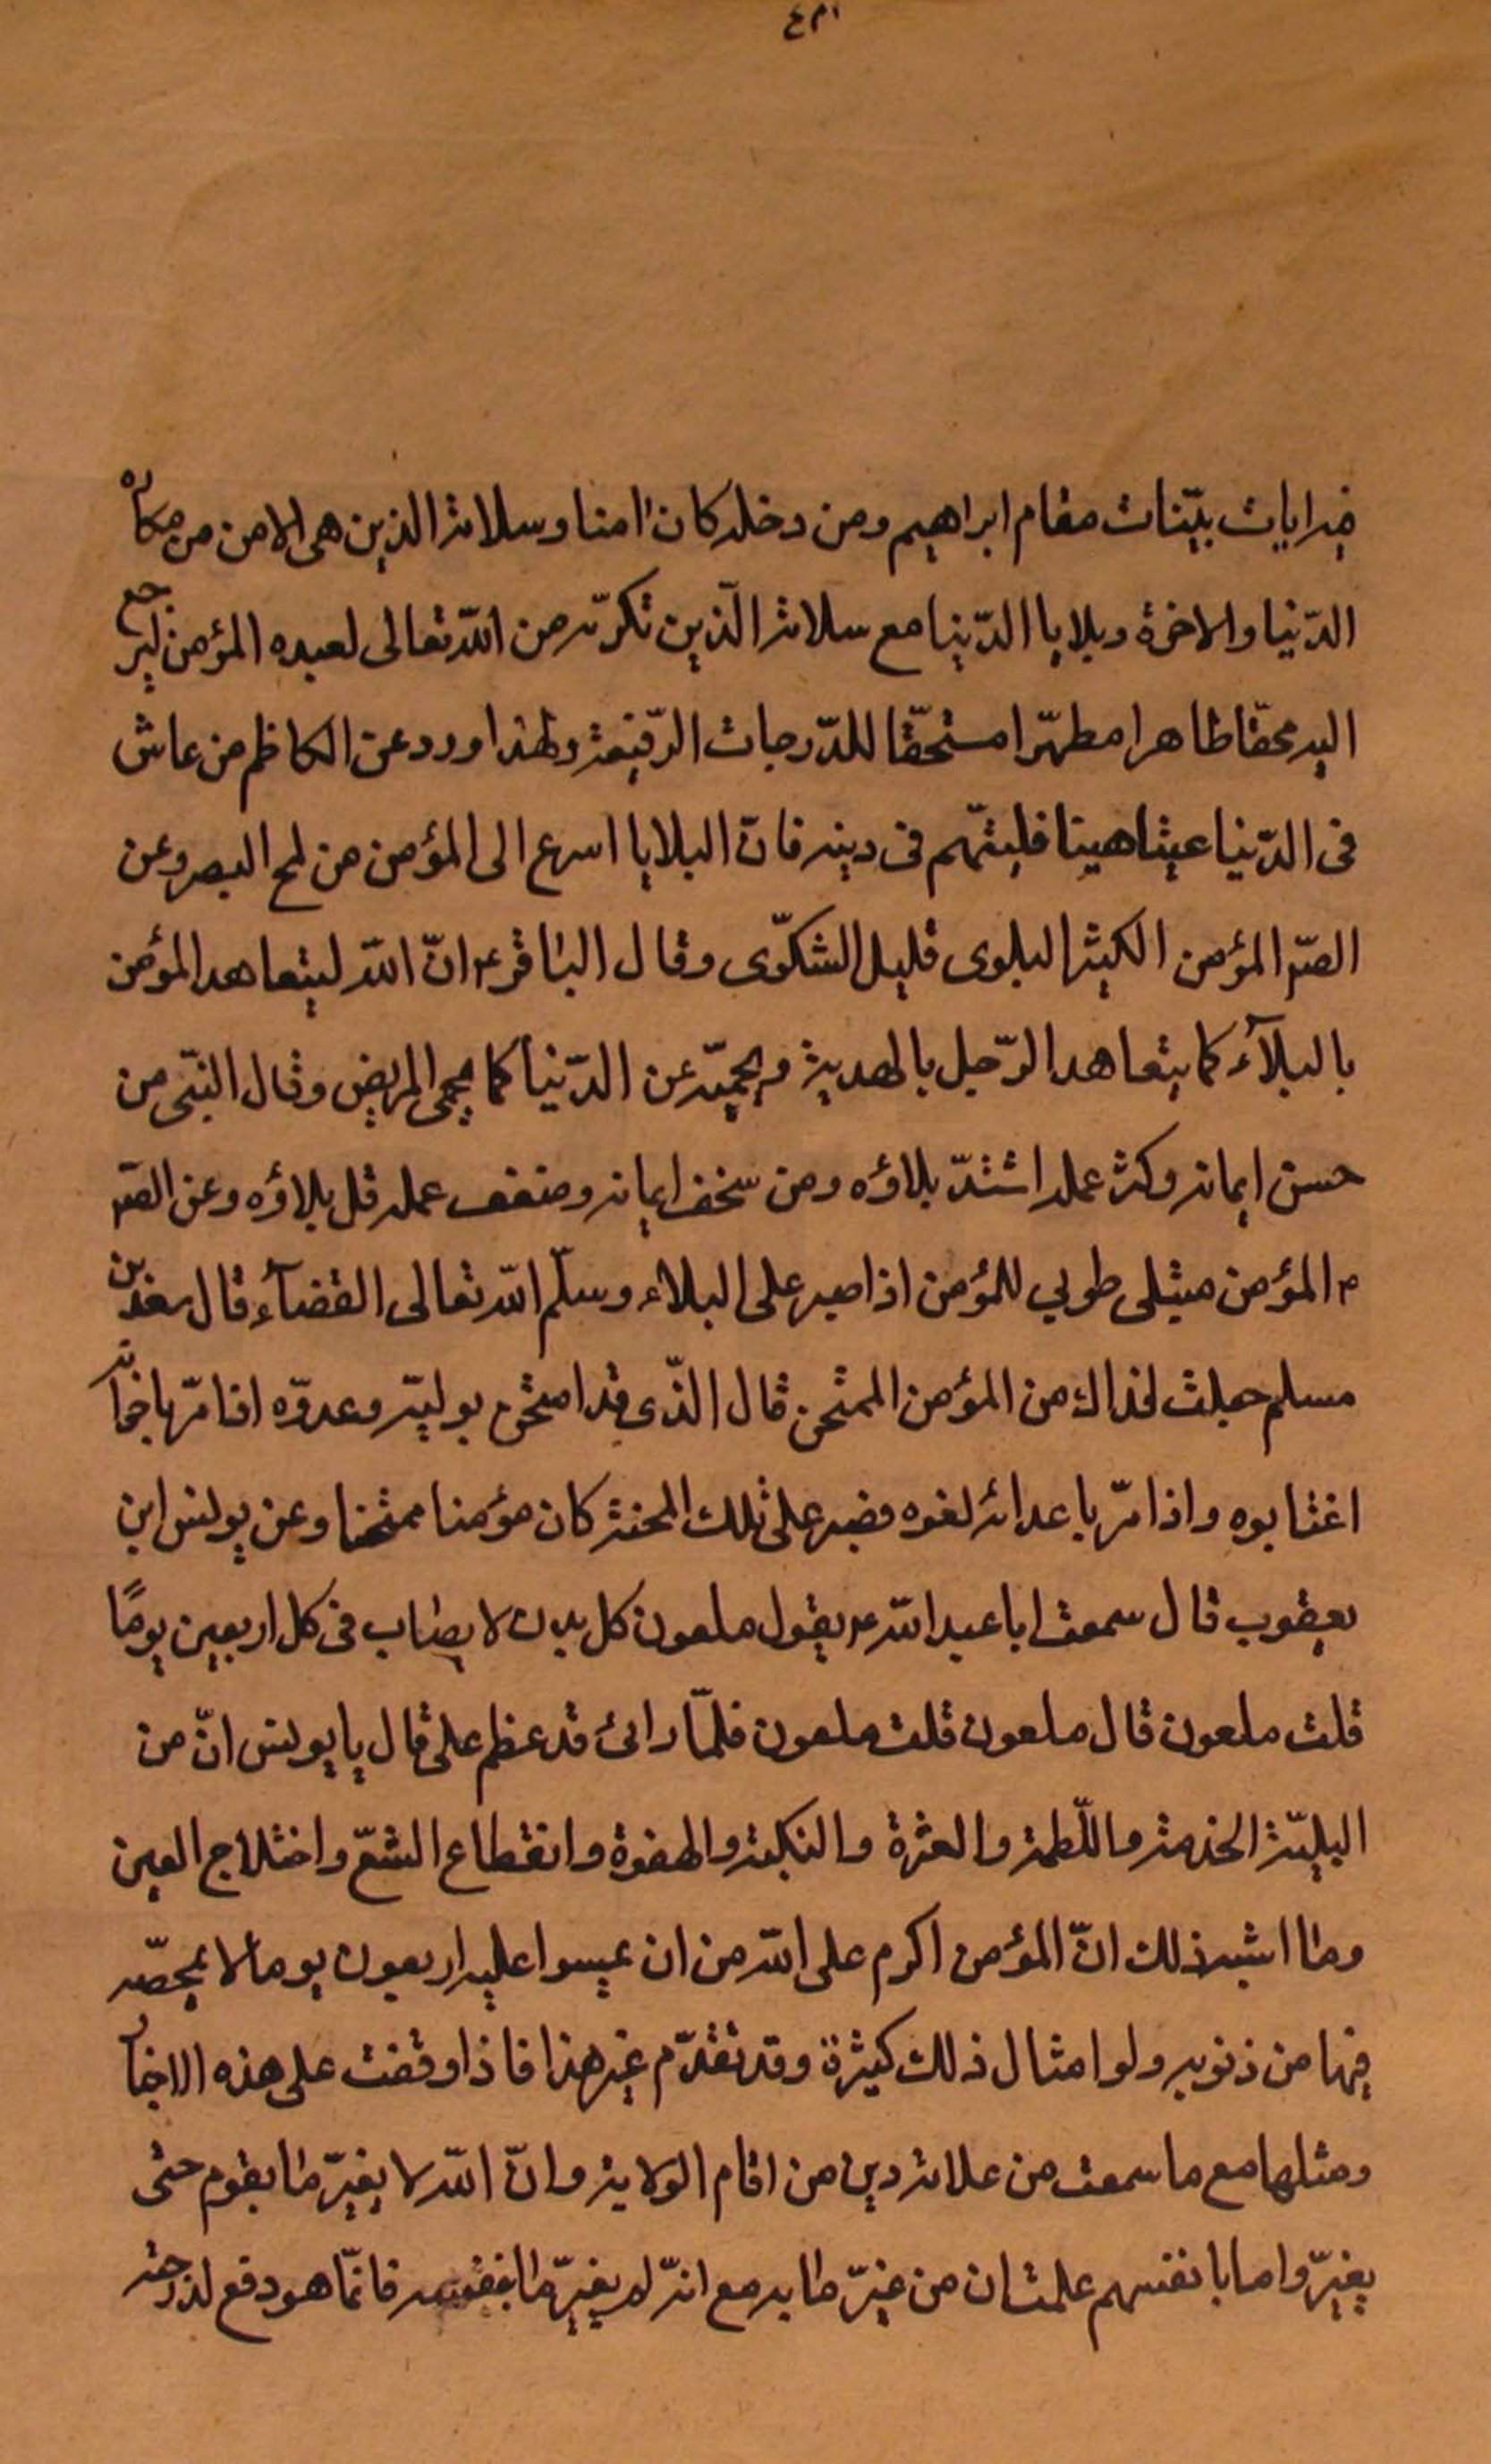 فيه ايات بيّنات مقام ابراهيم ومن دخله كان امنا وسلامة الدين هى الامن من مكاره
الدّنيا والاخرة وبلايا الدّنيا مع سلامة الدّين تكرّمة من اللّه تعالى لعبده المؤمن ليرجع
اليه محقّا طاهرا مطهّرا مستحقّا للدّرجات الرّفيعة ولهذا ورد عن الكاظم من عاش
فى الدّنيا عيشا هينا فليتّهم فى دينه فانّ البلايا اسرع الى المؤمن من لمح البصر وعن
الصّم المؤمن الكثير البلوى قليل الشكوّى وقال الباقر ع انّ اللّه ليتعاهد المؤمن
بالبلآء كما يتعاهد الرّجل بالهدية ويحميّه عن الدّنيا كما يحمى المريض وقال النبّى من
حسن ايمانه وكثر عمله اشتدّ بلاؤه ومن سخف ايمانه وضعف عمله قل بلاؤه وعن الصّم
م المؤمن مبتلى طوبي للمؤمن اذا صبر على البلاء وسلّم اللّه تعالى القضآء قال سعد بن
مسلم جعلت فداك من المؤمن الممتحن قال الذّى قد امتحن بوليّه وعدوّه اذا مرّ باخوانه
اغتابوه واذا مرّ باعدائه لغوه فصبر على تلك المحنة كان مؤمنا ممتحنا وعن يونس ابن
يعقوب قال سمعت ابا عبد اللّه ع يقول ملعون كل بدن لا يصاب فى كل اربعين يومًا
قلت ملعون قال ملعون قلت ملعون فلمّا رائ قد عظم على قال يا يونس انّ من
البليّة الخدمة واللّطمة والعثرة والنكبة والهفوة وانقطاع الشعّ واختلاج العين
وما اشبه ذلك انّ المؤمن اكرم على اللّه من ان يمسوا عليه اربعون يوما لا يمحّصه
فيها من ذنوبه ولو امثال ذلك كثيرة وقد تقدّم غير هذا فاذا وقفت على هذه الاخبار
ومثلها مع ما سمعت من علامة دين من اقام الولاية وانّ اللّه لا يغيّر ما بقوم حتى
يغيّروا ما بانفسهم علمت ان من غيّر ما به مع انّه لم يغيّر ما بنفسه فانّما هو دفع لدرجته